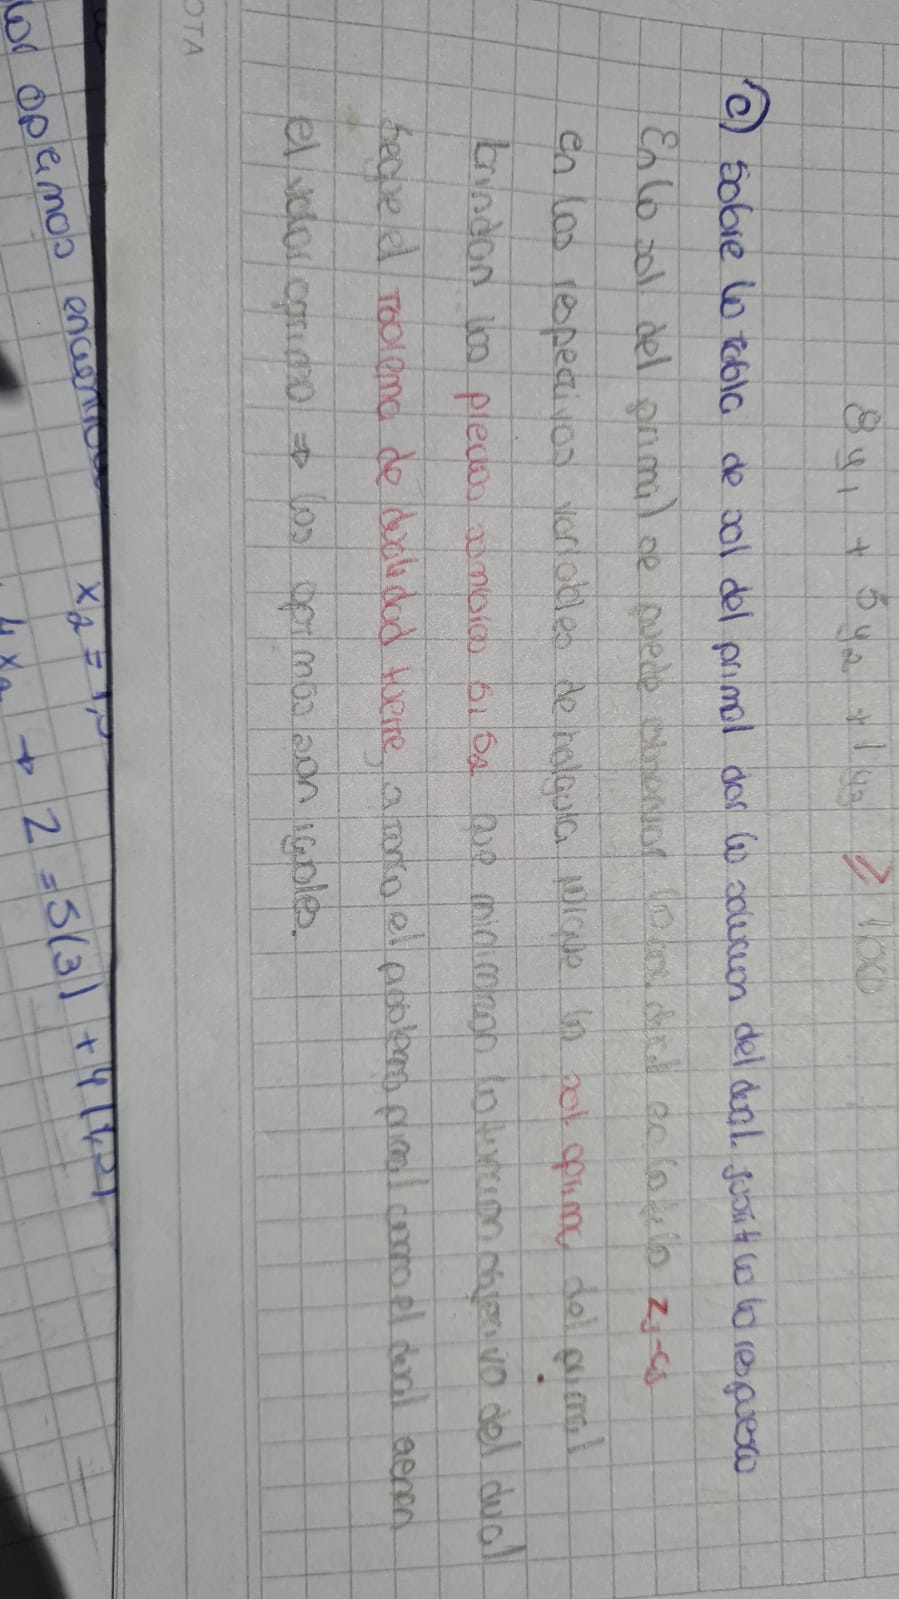 8y₁ + 5y₂ + 1y₃ ≥ 100
c) Sobre la tabla de sol del primal dar la solucion del dual. Justif la respuesta
En la sol del primal se puede la fila zj-cj
en las respectivas variables de holgura porque la sol optima del primal
brindan los precios sombra S1 S2 que minimizan la funcion objetivo del dual
Segun el Teorema de dualidad fuerte, a tanto el problema primal como el dual tienen
el valor optimo ⇒ los optimos son iguales.
NOTA
x₂ = 1,5
4x₂ → Z = 5(3) +